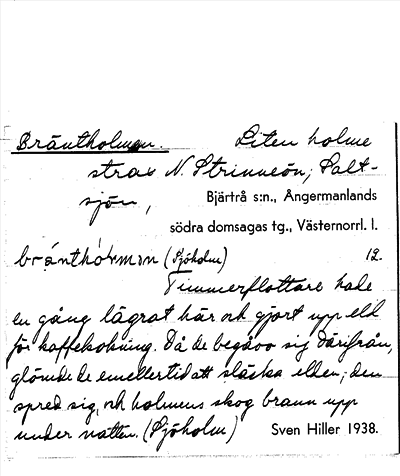 Bräntholmen. Liten holme
strax N. Strinneön, Salt-
sjön,
Bjärtrå s:n., Ångermanlands
södra domsagas tg., Västernorrl. l.
(Sjöholm) 12.
Timmerflottare hade
en gång lägrat här och gjort upp eld
för kaffekokning. Då de begåvo sig därifrån,
glömde de emellertid att släcka elden; den
spred sig, och holmens skog brann upp
under natten. (Sjöholm)
Sven Hiller 1938.